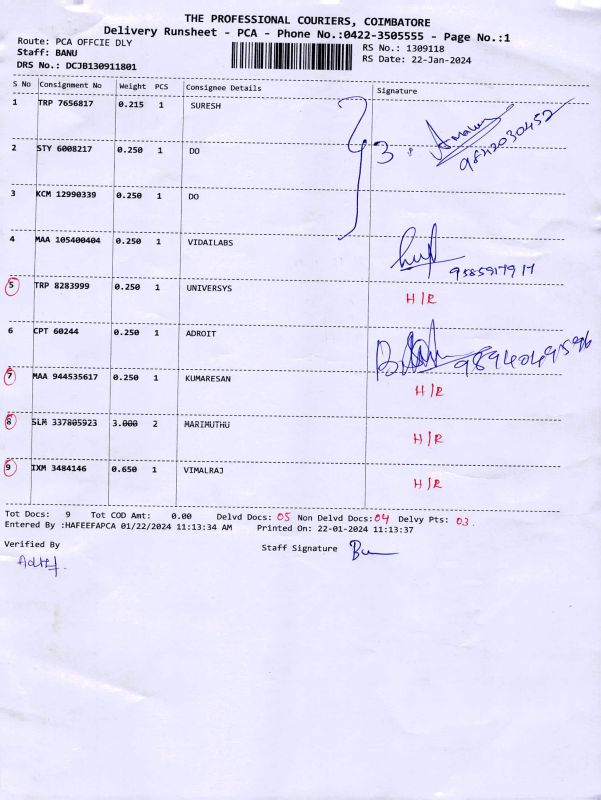 THE PROFESSIONAL COURIERS, COIMBATORE
Delivery Runsheet - PCA - Phone No.:0422-3505555 - Page No.:1
Route: PCA OFFCIE DLY
Staff: BANU
DRS No.: DCJB130911801
RS No.: 1309118
RS Date: 22-Jan-2024
S No Consignment No Weight PCS Consignee Details Signature
1 TRP 7656817 0.215 1 SURESH
9842030452
2 STY 6008217 0.250 1 DO 3
3 KCM 12990339 0.250 1 DO
4 MAA 105400404 0.250 1 VIDAILABS
9585917917
5 TRP 8283999 0.250 1 UNIVERSYS H/R
6 CPT 60244 0.250 1 ADROIT
7 MAA 944535617 0.250 1 KUMARESAN H/R
8 SLM 337805923 3.000 2 MARIMUTHU H/R
9 IXM 3484146 0.650 1 VIMALRAJ H/R
Tot Docs: 9 Tot COD Amt: 0.00 Delvd Docs: 05 Non Delvd Docs:04 Delvy Pts: 03.
Entered By :HAFEEFAPCA 01/22/2024 11:13:34 AM Printed On: 22-01-2024 11:13:37
Verified By
Staff Signature